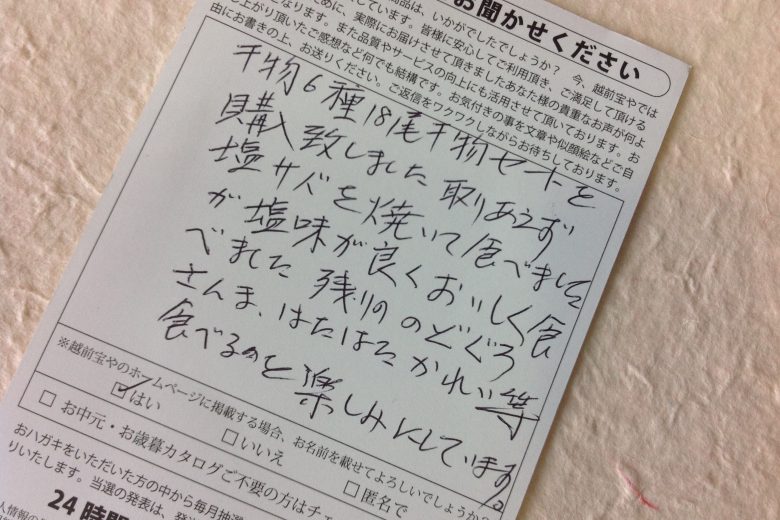 お聞かせください
商品は、いかがでしたでしょうか? 今、越前宝やでは
しています。皆様に安心してご利用頂き、ご満足して頂ける
ために、実際にお届けさせて頂きましたあなた様の貴重なお声が何よ
となります。また品質やサービスの向上にも活用させて頂いております。お
し上がり頂いたご感想など何でも結構です。お気付きの事を文章や似顔絵などご自
由にお書きの上、お送りください。ご返信をワクワクしながらお待ちしております。
干物6種18尾干物セットを
購入致しました 取りあえず
塩サバを焼いて食べました
が塩味が良くおいしく食
べました 残りの のどぐろ
さんま、はたはた かれい等
食べるのを楽しみにしています。
※越前宝やのホームページに掲載する場合、お名前を載せてよろしいでしょうか?
はい いいえ 匿名で
お中元・お歳暮カタログご不要の方はチ
おハガキをいただいた方の中から毎月抽選
りいたします。当選の発表は、発
24時間
人情報の